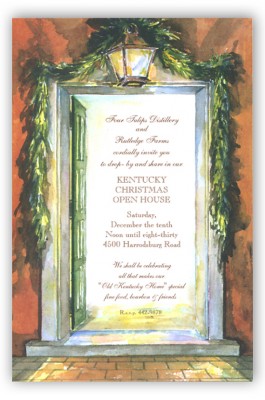 Four Tulips Distillery
and
Rutledge Farms
cordially invite you
to drop-by and share in our
KENTUCKY
CHRISTMAS
OPEN HOUSE
Saturday,
December the tenth
Noon until eight-thirty
4500 Harrodsburg Road
We shall be celebrating
all that makes our
"Old Kentucky Home" special
fine food, bourbon & friends.
R.s.v.p.